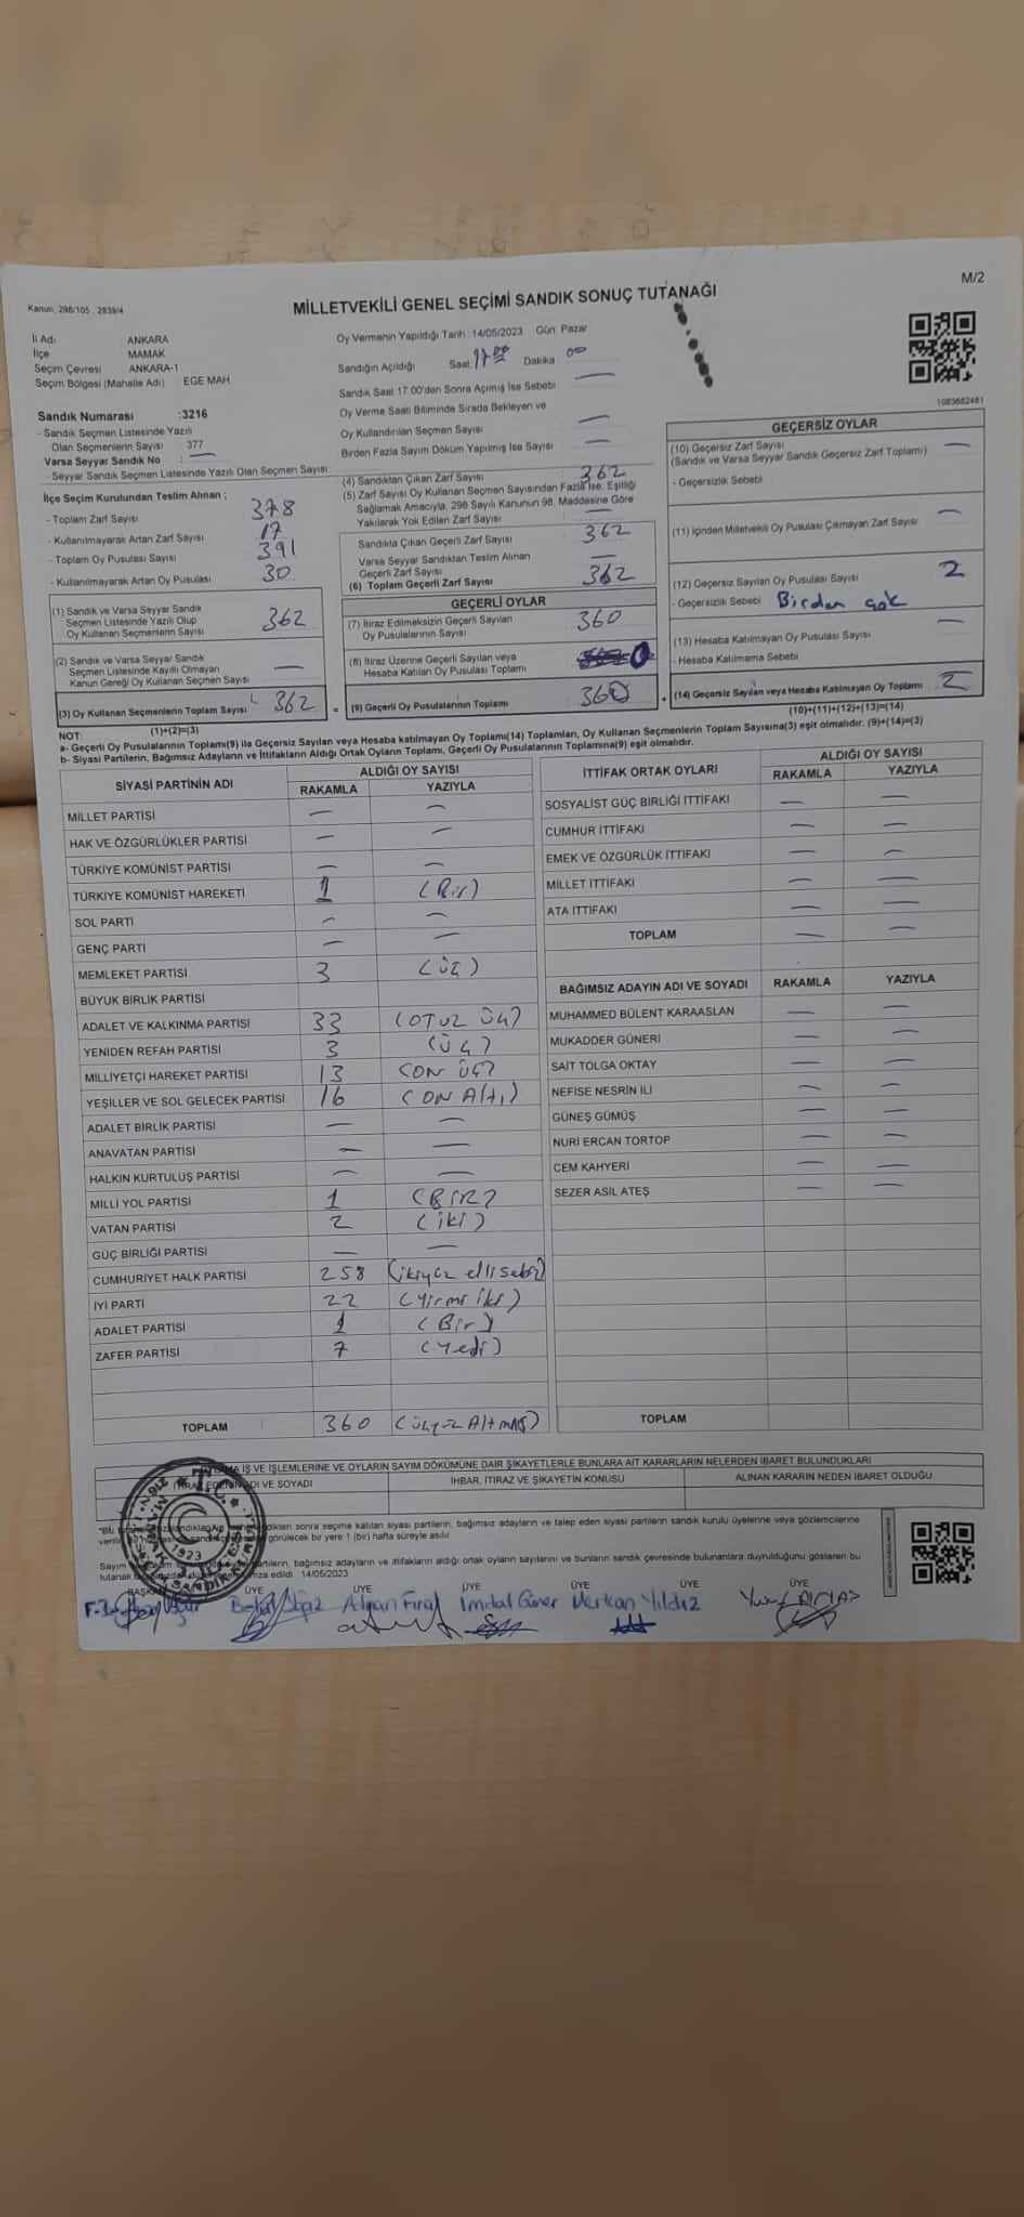 M/2
Kanun, 298/105 , 2839/4
MİLLETVEKİLİ GENEL SEÇİMİ SANDIK SONUÇ TUTANAĞI
İl Adı ANKARA
İlçe MAMAK
Seçim Çevresi ANKARA-1
Seçim Bölgesi (Mahalle Adı) EGE MAH.
Sandık Numarası :3216
- Sandık Seçmen Listesinde Yazılı
Olan Seçmenlerin Sayısı 377
Varsa Seyyar Sandık No : —
- Seyyar Sandık Seçmen Listesinde Yazılı Olan Seçmen Sayısı
Oy Vermenin Yapıldığı Tarih :14/05/2023 Gün: Pazar
Sandığın Açıldığı Saat: Dakika 00
Sandık Saat 17:00'den Sonra Açılmış İse Sebebi —
Oy Verme Saati Bitiminde Sırada Bekleyen ve
Oy Kullandırılan Seçmen Sayısı —
Birden Fazla Sayım Döküm Yapılmış İse Sayısı —
1083682481
İlçe Seçim Kurulundan Teslim Alınan ;
- Toplam Zarf Sayısı 378
- Kullanılmayarak Artan Zarf Sayısı 17
- Toplam Oy Pusulası Sayısı 391
- Kullanılmayarak Artan Oy Pusulası 30
(1) Sandık ve Varsa Seyyar Sandık
Seçmen Listesinde Yazılı Olup
Oy Kullanan Seçmenlerin Sayısı 362
(2) Sandık ve Varsa Seyyar Sandık
Seçmen Listesinde Kayıtlı Olmayan
Kanun Gereği Oy Kullanan Seçmen Sayısı —
(3) Oy Kullanan Seçmenlerin Toplam Sayısı 362
(1)+(2)=(3)
(4) Sandıktan Çıkan Zarf Sayısı 362
(5) Zarf Sayısı Oy Kullanan Seçmen Sayısından Fazla İse; Eşitliği
Sağlamak Amacıyla, 298 Sayılı Kanunun 98. Maddesine Göre
Yakılarak Yok Edilen Zarf Sayısı —
Sandıkta Çıkan Geçerli Zarf Sayısı 362
Varsa Seyyar Sandıktan Teslim Alınan
Geçerli Zarf Sayısı —
(6) Toplam Geçerli Zarf Sayısı 362
GEÇERLİ OYLAR
(7) İtiraz Edilmeksizin Geçerli Sayılan
Oy Pusulalarının Sayısı 360
(8) İtiraz Üzerine Geçerli Sayılan veya
Hesaba Katılan Oy Pusulası Toplamı 0
(9) Geçerli Oy Pusulalarının Toplamı 360
GEÇERSİZ OYLAR
(10) Geçersiz Zarf Sayısı —
(Sandık ve Varsa Seyyar Sandık Geçersiz Zarf Toplamı)
- Geçersizlik Sebebi
(11) İçinden Milletvekili Oy Pusulası Çıkmayan Zarf Sayısı —
(12) Geçersiz Sayılan Oy Pusulası Sayısı 2
- Geçersizlik Sebebi Birden çok
(13) Hesaba Katılmayan Oy Pusulası Sayısı —
- Hesaba Katılmama Sebebi
(14) Geçersiz Sayılan veya Hesaba Katılmayan Oy Toplamı 2
(10)+(11)+(12)+(13)=(14)
NOT:
a- Geçerli Oy Pusulalarının Toplamı(9) ile Geçersiz Sayılan veya Hesaba katılmayan Oy Toplamı(14) Toplamları, Oy Kullanan Seçmenlerin Toplam Sayısına(3) eşit olmalıdır. (9)+(14)=(3)
b- Siyasi Partilerin, Bağımsız Adayların ve İttifakların Aldığı Ortak Oyların Toplamı, Geçerli Oy Pusulalarının Toplamına(9) eşit olmalıdır.
SİYASİ PARTİNİN ADI ALDIĞI OY SAYISI
RAKAMLA YAZIYLA
MİLLET PARTİSİ — —
HAK VE ÖZGÜRLÜKLER PARTİSİ — —
TÜRKİYE KOMÜNİST PARTİSİ — —
TÜRKİYE KOMÜNİST HAREKETİ 1 (Bir)
SOL PARTİ — —
GENÇ PARTİ — —
MEMLEKET PARTİSİ 3 (ÜÇ)
BÜYÜK BİRLİK PARTİSİ
ADALET VE KALKINMA PARTİSİ 33 (OTUZ ÜÇ)
YENİDEN REFAH PARTİSİ 3 (ÜÇ)
MİLLİYETÇİ HAREKET PARTİSİ 13 (ON ÜÇ)
YEŞİLLER VE SOL GELECEK PARTİSİ 16 (ON Altı)
ADALET BİRLİK PARTİSİ — —
ANAVATAN PARTİSİ — —
HALKIN KURTULUŞ PARTİSİ — —
MİLLİ YOL PARTİSİ 1 (BİR)
VATAN PARTİSİ 2 (iki)
GÜÇ BİRLİĞİ PARTİSİ — —
CUMHURİYET HALK PARTİSİ 258 (ikiyüz elli sekiz)
İYİ PARTİ 22 (Yirmi iki)
ADALET PARTİSİ 1 (Bir)
ZAFER PARTİSİ 7 (Yedi)
TOPLAM 360 (üçyüz Altmış)
İTTİFAK ORTAK OYLARI ALDIĞI OY SAYISI
RAKAMLA YAZIYLA
SOSYALİST GÜÇ BİRLİĞİ İTTİFAKI — —
CUMHUR İTTİFAKI — —
EMEK VE ÖZGÜRLÜK İTTİFAKI — —
MİLLET İTTİFAKI — —
ATA İTTİFAKI — —
TOPLAM — —
BAĞIMSIZ ADAYIN ADI VE SOYADI RAKAMLA YAZIYLA
MUHAMMED BÜLENT KARAASLAN — —
MUKADDER GÜNERİ — —
SAİT TOLGA OKTAY — —
NEFİSE NESRİN İLİ — —
GÜNEŞ GÜMÜŞ — —
NURİ ERCAN TORTOP — —
CEM KAHYERİ — —
SEZER ASİL ATEŞ — —
TOPLAM
İŞ VE İŞLEMLERİNE VE OYLARIN SAYIM DÖKÜMÜNE DAİR ŞİKAYETLERLE BUNLARA AİT KARARLARIN NELERDEN İBARET BULUNDUKLARI
ADI VE SOYADI İHBAR, İTİRAZ VE ŞİKAYETİN KONUSU ALINAN KARARIN NEDEN İBARET OLDUĞU
sonra seçime katılan siyasi partilerin, bağımsız adayların ve talep eden siyasi partilerin sandık kurulu üyelerine veya gözlemcilerine
görülecek bir yere 1 (bir) hafta süreyle asılır
Sayım bağımsız adayların ve ittifakların aldığı ortak oyların sayılarını ve bunların sandık çevresinde bulunanlara duyrulduğunu gösteren bu
tutanak edildi 14/05/2023
BAŞKAN ÜYE ÜYE ÜYE ÜYE ÜYE ÜYE
Alpan Fırat İmdat Güner Yıldız
T.C.
1923